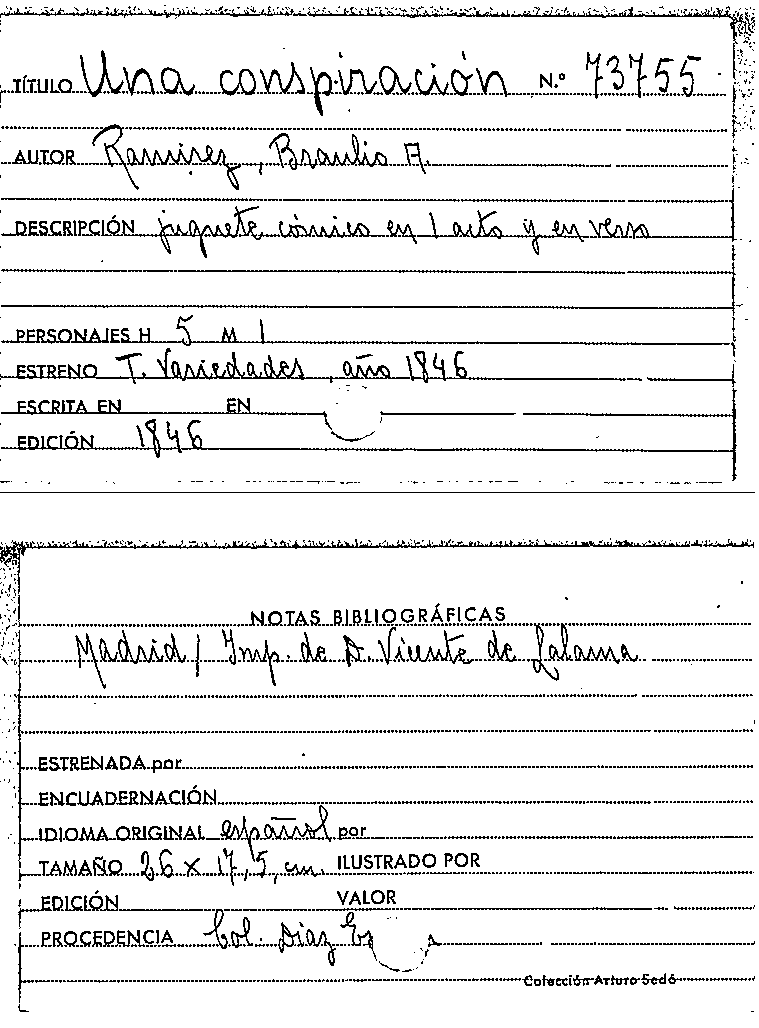 TÍTULO Una conspiración N.º 73755
AUTOR Ramirez, Braulio A.
DESCRIPCIÓN juguete cómico en 1 acto y en verso
PERSONAJES H 5 M 1
ESTRENO T. Variedades, año 1846
ESCRITA EN EN
EDICIÓN 1846
NOTAS BIBLIOGRÁFICAS
Madrid / Imp. de D. Vicente de Lalama
ESTRENADA por
ENCUADERNACIÓN
IDIOMA ORIGINAL español por
TAMAÑO 26 x 17,5, cm. ILUSTRADO POR
EDICIÓN VALOR
PROCEDENCIA Col. Diaz
Colección Arturo Sedó